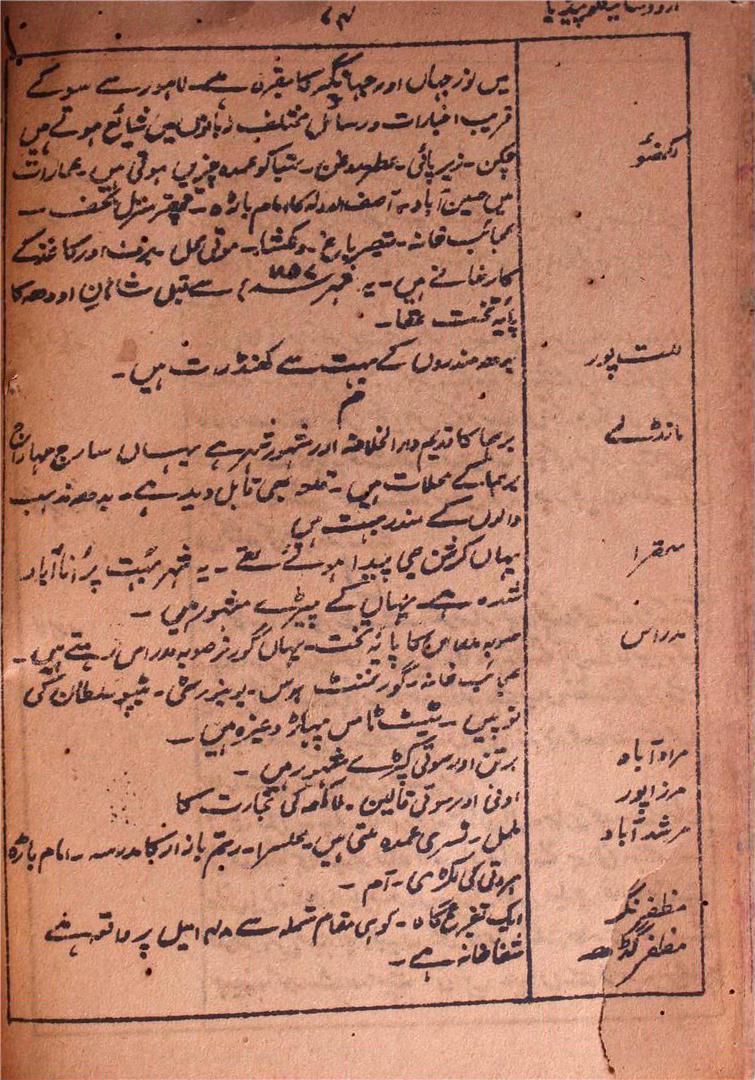 ۷۴
میں نورجہاں اور جہانگیر کا مقبرہ ہے۔ لاہور سے سو کے
قریب اخبارات و رسائل مختلف زبانوں میں شائع ہوتے ہیں
لکھنؤ
چکن۔ زیرپائی۔ عطر روغن۔ تمباکو عمدہ چیزیں ہوتی ہیں۔ عمارات
میں حسین آباد۔ آصف الدولہ کا امام باڑہ۔ چھتر منزل۔ نجف۔
عجائب خانہ۔ قیصر باغ۔ دلکشا۔ موتی محل۔ برف اور کاغذ کے
کارخانے ہیں۔ یہ شہر ۱۸۵۷ء سے قبل شاہان اودھ کا
پایۂ تخت تھا۔
للت پور
بدھ مندروں کے بہت سے کھنڈرات ہیں۔
م
مانڈلے
برہما کا قدیم دارالخلافہ اور مشہور شہر ہے یہاں سابق مہاراج
برہما کے محلات ہیں۔ قلعہ بھی قابل دید ہے۔ بدھ مذہب
والوں کے مندر بہت ہیں
متھرا
یہاں کرشن جی پیدا ہوئے تھے۔ یہ شہر بہت پرانا آباد
شدہ ہے یہاں کے پیڑے مشہور ہیں۔
مدراس
صوبہ مدراس کا پایہ تخت۔ یہاں گورنر صوبہ مدراس رہتے ہیں۔
عجائب خانہ۔ گورنمنٹ ہوس۔ یونیورسٹی۔ ٹیپو سلطان کی
توپیں۔ سینٹ ٹامس پہاڑ وغیرہ ہیں۔
مرادآباد
برتن اور سوتی کپڑے مشہور ہیں۔
مرزاپور
اونی اور سوتی قالین۔ لاکھ کی تجارت کا
مرشدآباد
ململ۔ ٹسری عمدہ ملتی ہیں۔ محلسرا۔ بازار کا مدرسہ۔ امام باڑہ
کی لکڑی۔ آم۔
مظفر نگر
ایک تفریح گاہ۔ کوہی مقام شملہ سے ۸۱ میل پر واقع ہے
مظفر گڑھ
شفاخانہ ہے۔